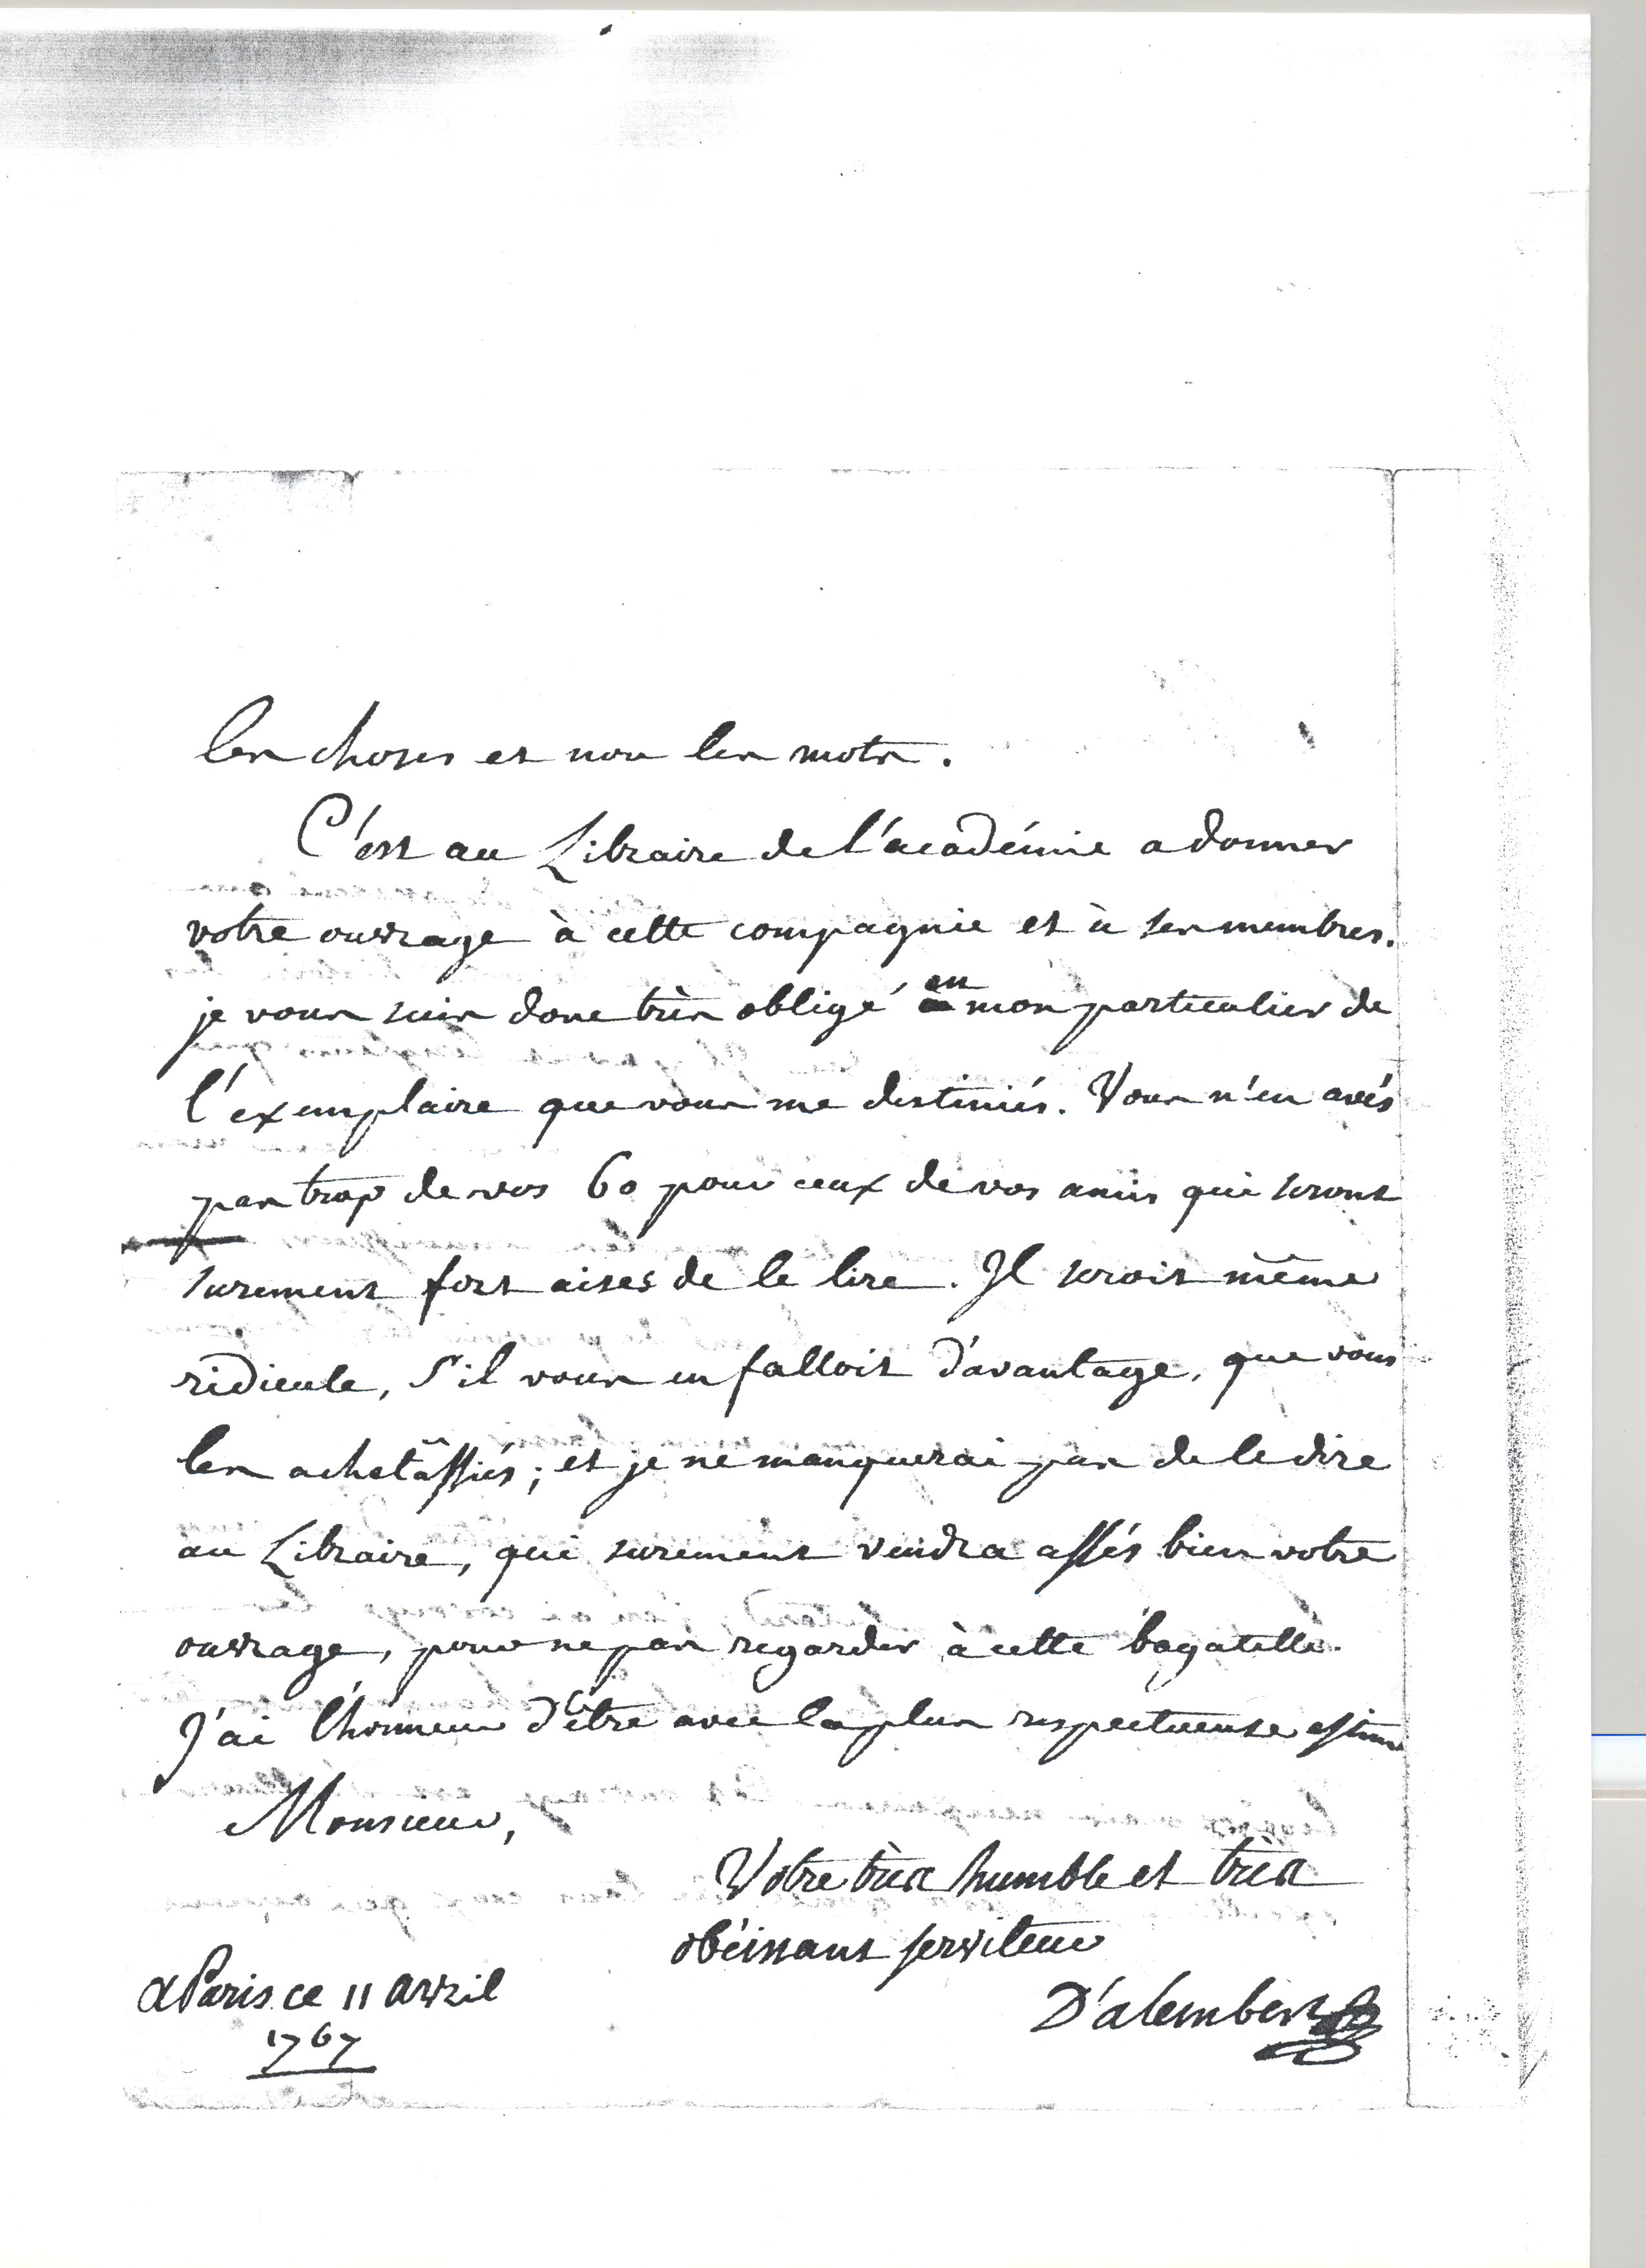 les choses et non les mots.
C'est au Libraire de l'académie a donner
votre ouvrage à cette compagnie et à ses membres.
je vous suis donc très obligé en mon particulier de
l'exemplaire que vous me destiniés. Vous n'en avés
pas trop de vos 60 pour ceux de vos amis qui seront
surement fort aises de le lire. Il seroit même
ridicule, s'il vous en falloit d'avantage, que vous
les achetâssiés; et je ne manquerai pas de le dire
au Libraire, qui surement vendra assés bien votre
ouvrage, pour ne pas regarder à cette bagatelle.
J'ai l'honneur d'être avec la plus respectueuse estime
Monsieur,
Votre très humble et très
obéissant serviteur
a Paris ce 11 avril
1767
D'alembert